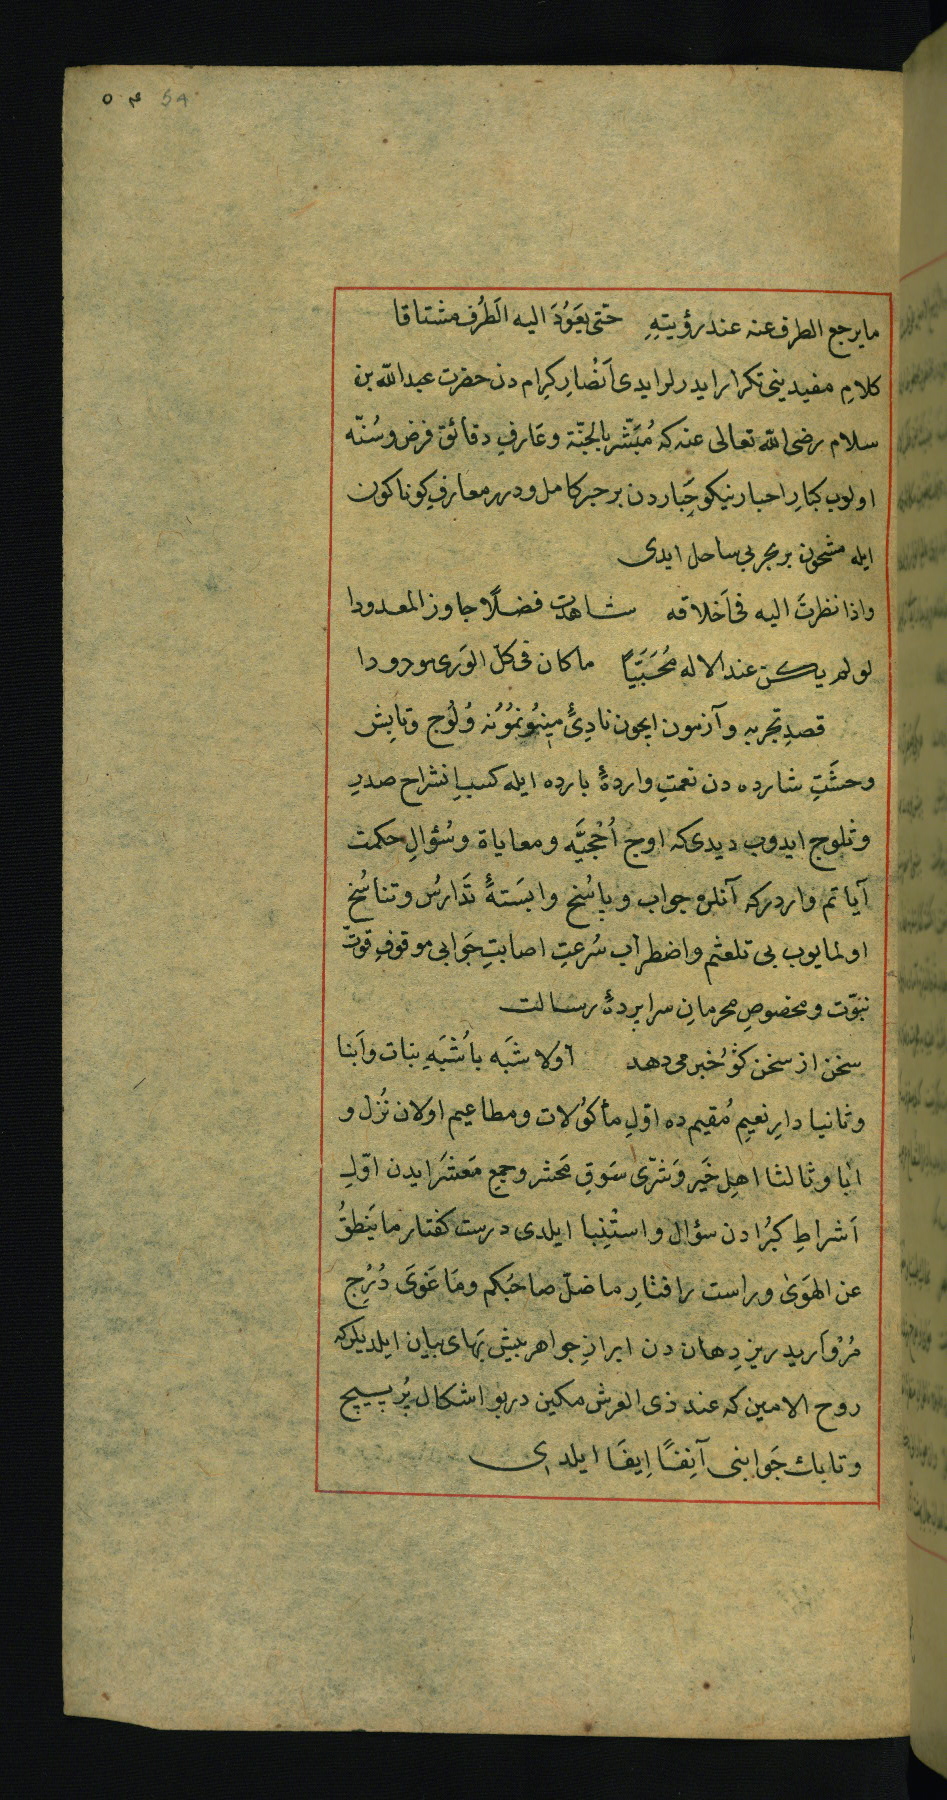 54 ٥٤
ما يرجع الطرف عنه عند رؤيتِهِ حتّى يَعوُدَ اليه الَطَّرُف مشتاقا
كلامِ مفيدينى تكرار ايدرلر ايدى اَنْصارِ كِرام دن حضرت عبد الله بن
سلام رضى الله تعالى عنه كه مُبَشّر بالجنّة وعَارفِ دقائق فرض وسُنّه
اولوب كبارِ احبار نيكو حَباردن بر حبر كامل ودرر معارفِ كوناكون
ايله مشحون بر بحر بى ساحل ايدى
واذا نظرتَ اليه فى اَخلاقه شاهدت فضلًا جاوز المعدودا
لو لم يكن عند الاله مُحَبَّبًا ما كان فى كلّ الوَرى مودودا
قصدِ تجربه وآزمون ايچون نادِىٔ مينوُنموُنه وُلوُج وتابِش
وحشَتِ شارده دن نعمتِ واردهٔ بارده ايله كسبِ اِنشراح صدرِ
وثلوج ايدوب ديدى كه اوچ اُحْجيَّه ومعاياة وسُؤالِ حكمت
آياتم واردر كه آنلرو جواب و پاسُخ وابستهٔ تَدارسُ وتناسُخ
اولمايوب بى تلعثم واضطراب سُرعتِ اصابتِ جَوابى موقوفِ قوتّ
نبوّت ومخصوصِ محرمانِ سرا پردهٔ رسالت
سخن از سخن كوُ خبر مى دهد اولا شبَه باشْبَهِ بنات واَبنا
وثانيا دارِ نعيمِ مُقيمده اوّلِ مأكوُلات ومطاعيم اولان نُزل و
ابا وثالثا اهلِ خَير وَشرّى سَوقِ مَحشر وجمع مَعشَر ايدن اوّلِ
اَشراطِ كبُرادن سؤال واستْنبا ايلدى درست كفتار ما يَنطقُ
عن الهَوَى وراست رافتارِ ما ضلّ صاحبُكم ومَا غَوَى دُرْج
مُرْواريد ريزِ دِهان دن ابرازِ جواهر بيش بَهاى بيان ايلديلر كه
روح الامين كه عند ذى العرش مكين در بو اشكال پُر پيچ
وتابك جَوابنى آنِفًا اِيفَا ايلدى